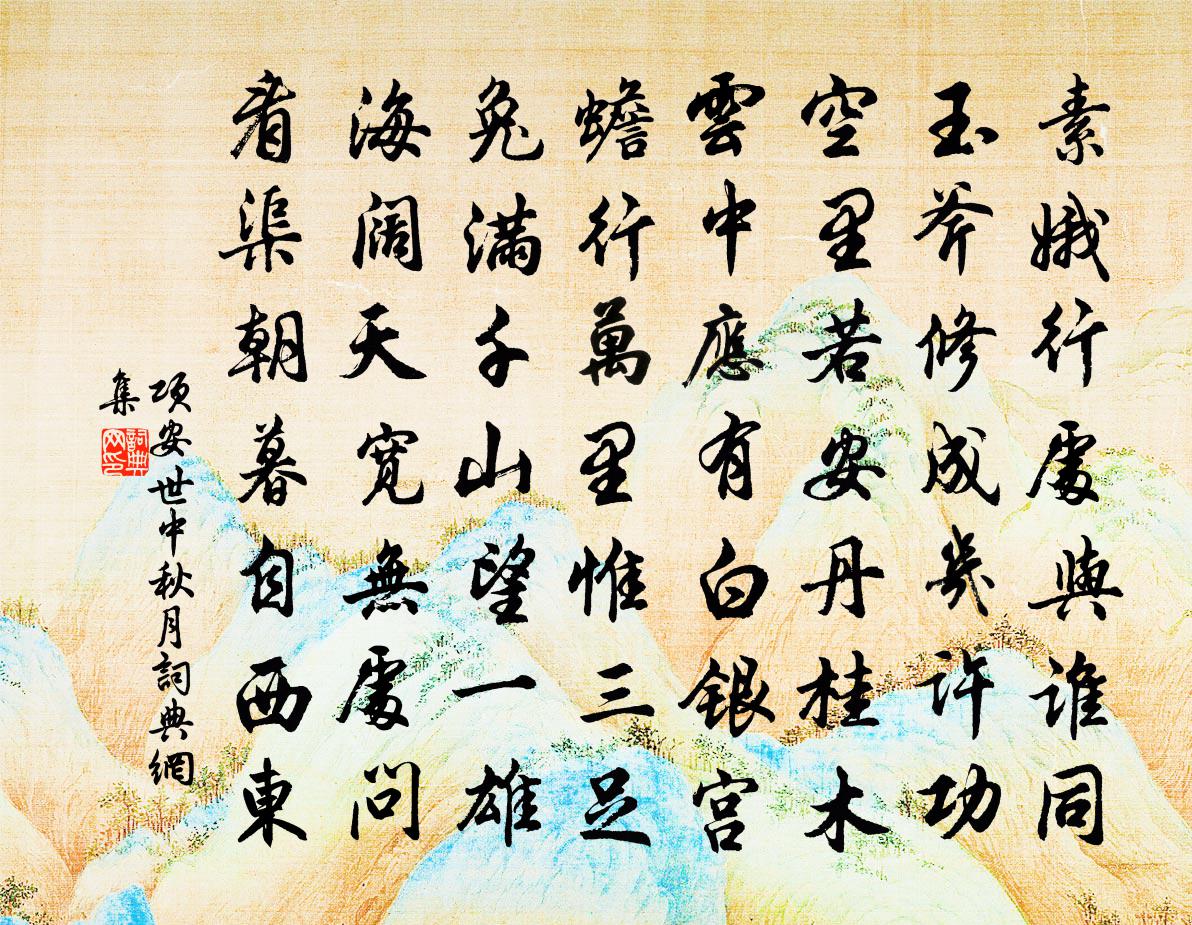 素娥行處與誰同
玉斧修成幾許功
空里若安丹桂木
雲中應有白銀宮
蟾行萬里惟三足
兔滿千山望一雄
海闊天寬無處問
看渠朝暮自西東
項安世中秋月詞典網
集
詞典網印